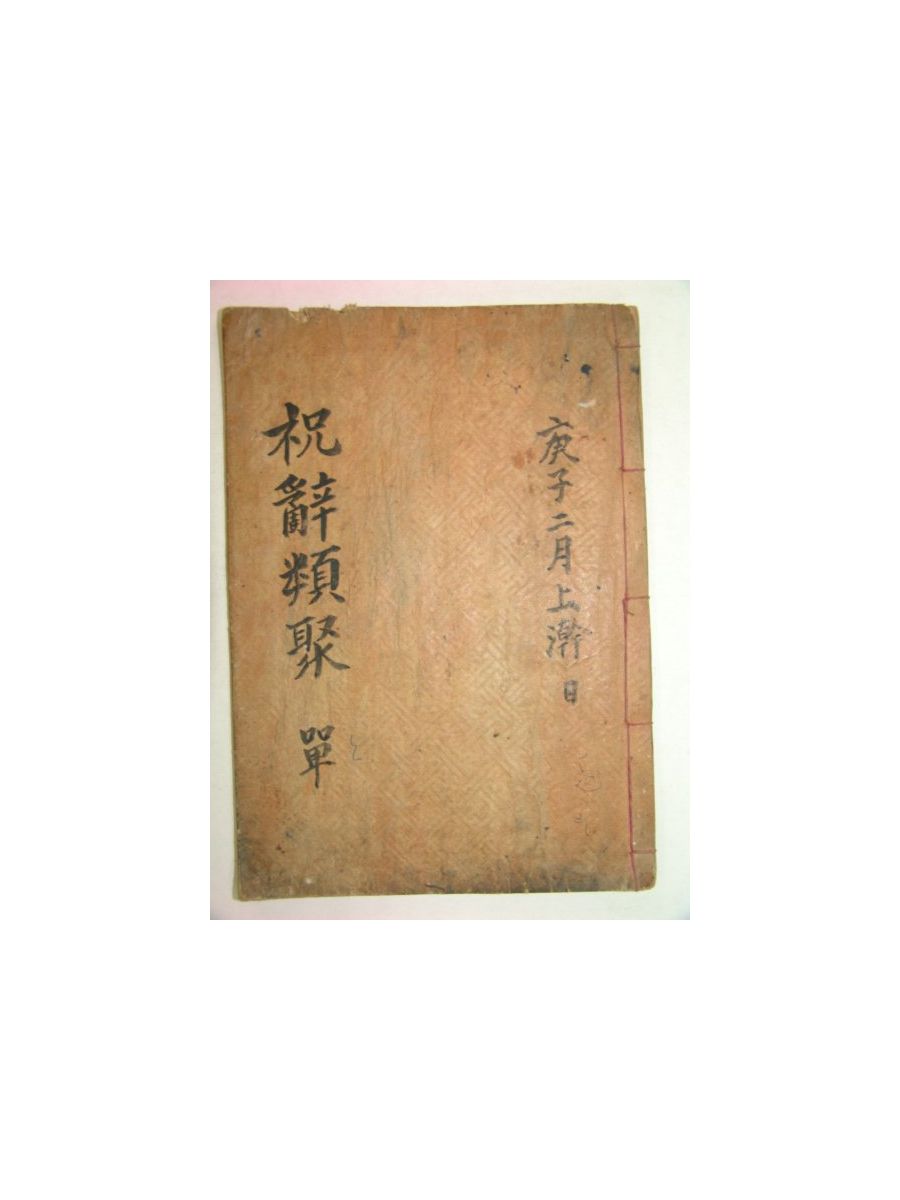 庚子二月上澣 日
祝辭類聚 單